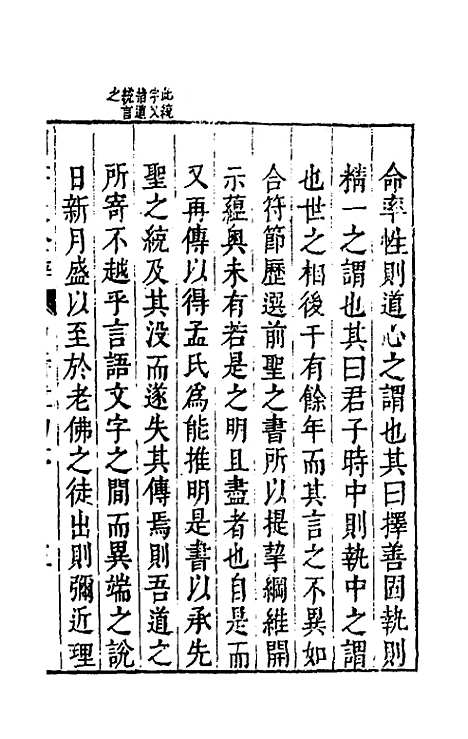 此統
字又
指道
統言
之
命率性則道心之謂也其曰擇善固執則
精一之謂也其曰君子時中則執中之謂
也世之相後千有餘年而其言之不異如
合符節歷選前聖之書所以提挈綱維開
示蘊奧未有若是之明且盡者也自是而
又再傳以得孟氏爲能推明是書以承先
聖之統及其没而遂失其傳焉則吾道之
所寄不越乎言語文字之間而異端之說
日新月盛以至於老佛之徒出則彌近理